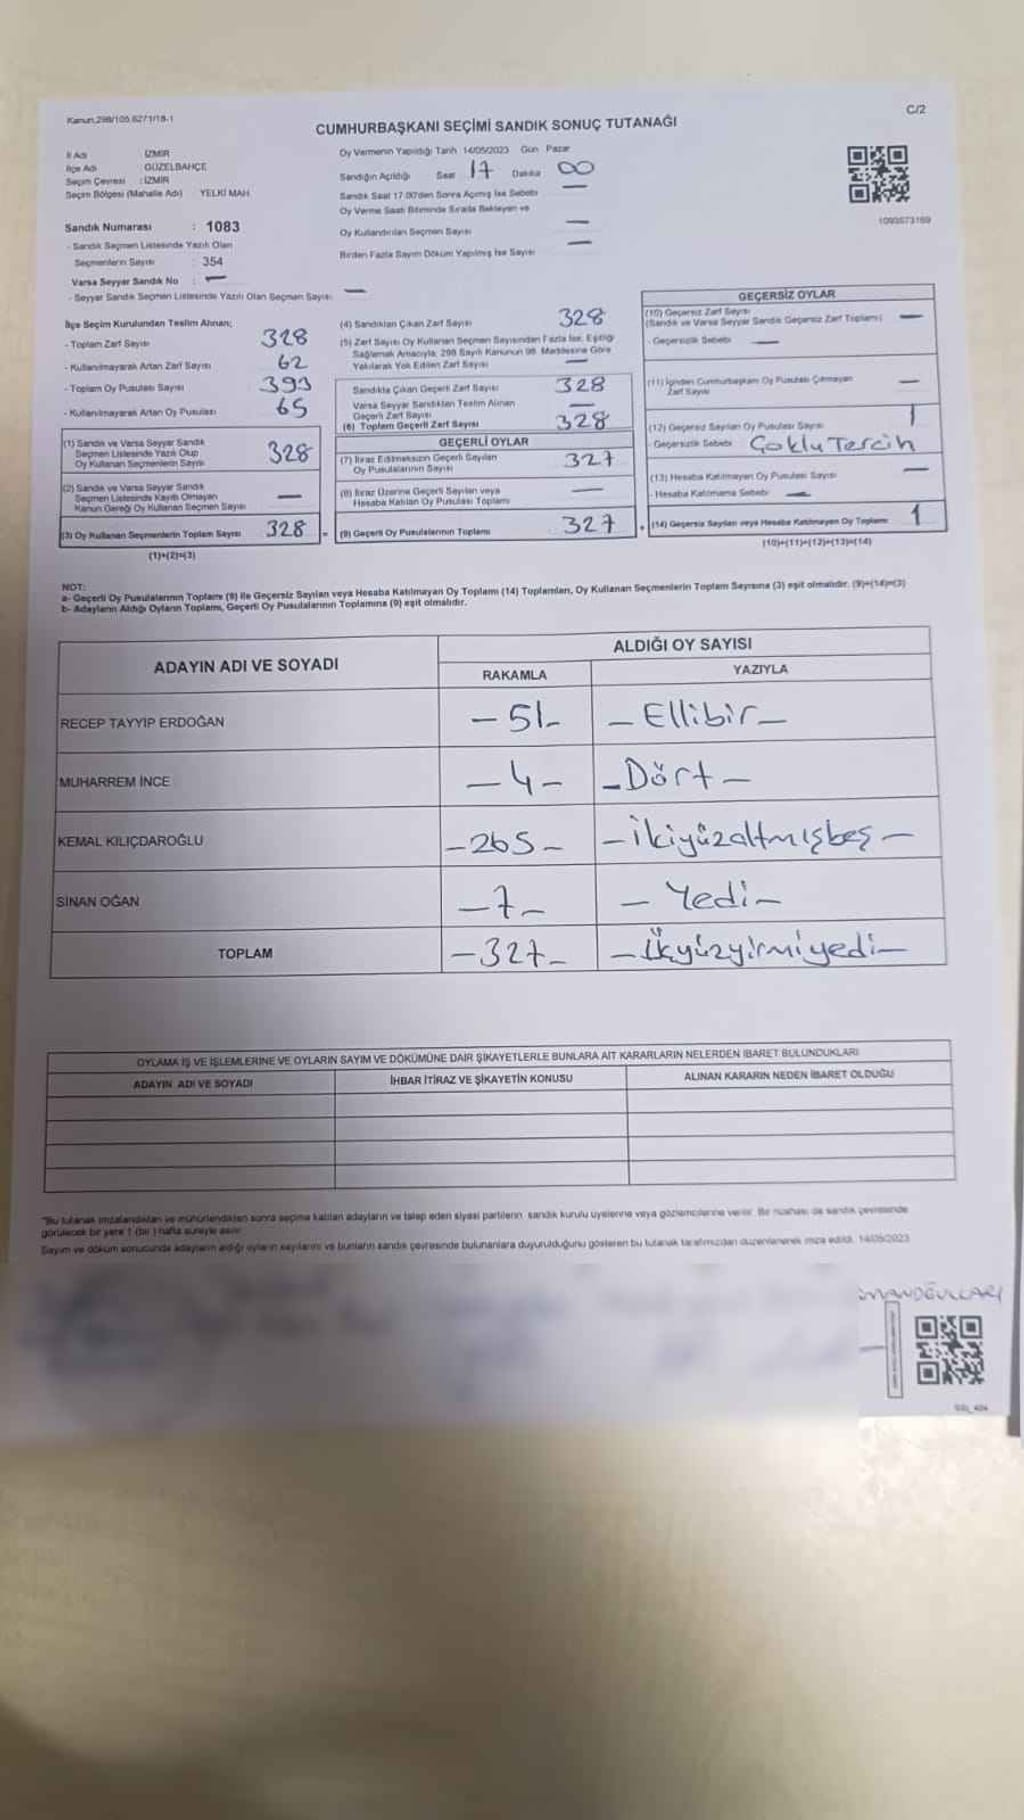 Kanun,298/105,6271/18-1
C/2
CUMHURBAŞKANI SEÇİMİ SANDIK SONUÇ TUTANAĞI
İl Adı İZMİR
İlçe Adı GÜZELBAHÇE
Seçim Çevresi : İZMİR
Seçim Bölgesi (Mahalle Adı) YELKİ MAH
Sandık Numarası : 1083
- Sandık Seçmen Listesinde Yazılı Olan
Seçmenlerin Sayısı : 354
Varsa Seyyar Sandık No : —
- Seyyar Sandık Seçmen Listesinde Yazılı Olan Seçmen Sayısı —
Oy Vermenin Yapıldığı Tarih 14/05/2023 Gün Pazar
Sandığın Açıldığı Saat 17 Dakika 00
Sandık Saat 17.00'den Sonra Açılmış İse Sebebi —
Oy Verme Saati Bitiminde Sırada Bekleyen ve
Oy Kullandırılan Seçmen Sayısı —
Birden Fazla Sayım Döküm Yapılmış İse Sayısı —
1093573169
İlçe Seçim Kurulundan Teslim Alınan;
- Toplam Zarf Sayısı 328
- Kullanılmayarak Artan Zarf Sayısı 62
- Toplam Oy Pusulası Sayısı 393
- Kullanılmayarak Artan Oy Pusulası 65
(1) Sandık ve Varsa Seyyar Sandık
Seçmen Listesinde Yazılı Olup
Oy Kullanan Seçmenlerin Sayısı 328
(2) Sandık ve Varsa Seyyar Sandık
Seçmen Listesinde Kayıtlı Olmayan
Kanun Gereği Oy Kullanan Seçmen Sayısı —
(3) Oy Kullanan Seçmenlerin Toplam Sayısı 328
(1)+(2)=(3)
(4) Sandıktan Çıkan Zarf Sayısı 328
(5) Zarf Sayısı Oy Kullanan Seçmen Sayısından Fazla İse, Eşitliği
Sağlamak Amacıyla, 298 Sayılı Kanunun 98. Maddesine Göre
Yakılarak Yok Edilen Zarf Sayısı —
Sandıkta Çıkan Geçerli Zarf Sayısı 328
Varsa Seyyar Sandıktan Teslim Alınan
Geçerli Zarf Sayısı —
(6) Toplam Geçerli Zarf Sayısı 328
GEÇERLİ OYLAR
(7) İtiraz Edilmeksizin Geçerli Sayılan
Oy Pusulalarının Sayısı 327
(8) İtiraz Üzerine Geçerli Sayılan veya
Hesaba Katılan Oy Pusulası Toplamı —
= (9) Geçerli Oy Pusulalarının Toplamı 327
GEÇERSİZ OYLAR
(10) Geçersiz Zarf Sayısı
(Sandık ve Varsa Seyyar Sandık Geçersiz Zarf Toplamı) —
- Geçersizlik Sebebi —
(11) İçinden Cumhurbaşkanı Oy Pusulası Çıkmayan
Zarf Sayısı —
(12) Geçersiz Sayılan Oy Pusulası Sayısı 1
- Geçersizlik Sebebi Çoklu Tercih
(13) Hesaba Katılmayan Oy Pusulası Sayısı —
- Hesaba Katılmama Sebebi —
+ (14) Geçersiz Sayılan veya Hesaba Katılmayan Oy Toplamı 1
(10)+(11)+(12)+(13)=(14)
NOT:
a- Geçerli Oy Pusulalarının Toplamı (9) ile Geçersiz Sayılan veya Hesaba Katılmayan Oy Toplamı (14) Toplamları, Oy Kullanan Seçmenlerin Toplam Sayısına (3) eşit olmalıdır. (9)+(14)=(3)
b- Adayların Aldığı Oyların Toplamı, Geçerli Oy Pusulalarının Toplamına (9) eşit olmalıdır.
ADAYIN ADI VE SOYADI
ALDIĞI OY SAYISI
RAKAMLA YAZIYLA
RECEP TAYYIP ERDOĞAN – 51 – – Ellibir –
MUHARREM İNCE – 4 – – Dört –
KEMAL KILIÇDAROĞLU – 265 – – ikiyüzaltmışbeş –
SİNAN OĞAN – 7 – – Yedi –
TOPLAM – 327 – – Üçyüzyirmiyedi –
OYLAMA İŞ VE İŞLEMLERİNE VE OYLARIN SAYIM VE DÖKÜMÜNE DAİR ŞİKAYETLERLE BUNLARA AİT KARARLARIN NELERDEN İBARET BULUNDUKLARI
ADAYIN ADI VE SOYADI İHBAR İTİRAZ VE ŞİKAYETİN KONUSU ALINAN KARARIN NEDEN İBARET OLDUĞU
"Bu tutanak imzalandıktan ve mühürlendikten sonra seçime katılan adayların ve talep eden siyasi partilerin sandık kurulu üyelerine veya gözlemcilerine verilir. Bir nüshası da sandık çevresinde
görülecek bir yere 1 (bir) hafta süreyle asılır.
Sayım ve döküm sonucunda adayların aldığı oyların sayılarını ve bunların sandık çevresinde bulunanlara duyurulduğunu gösteren bu tutanak tarafımızdan düzenlenerek imza edildi. 14/05/2023